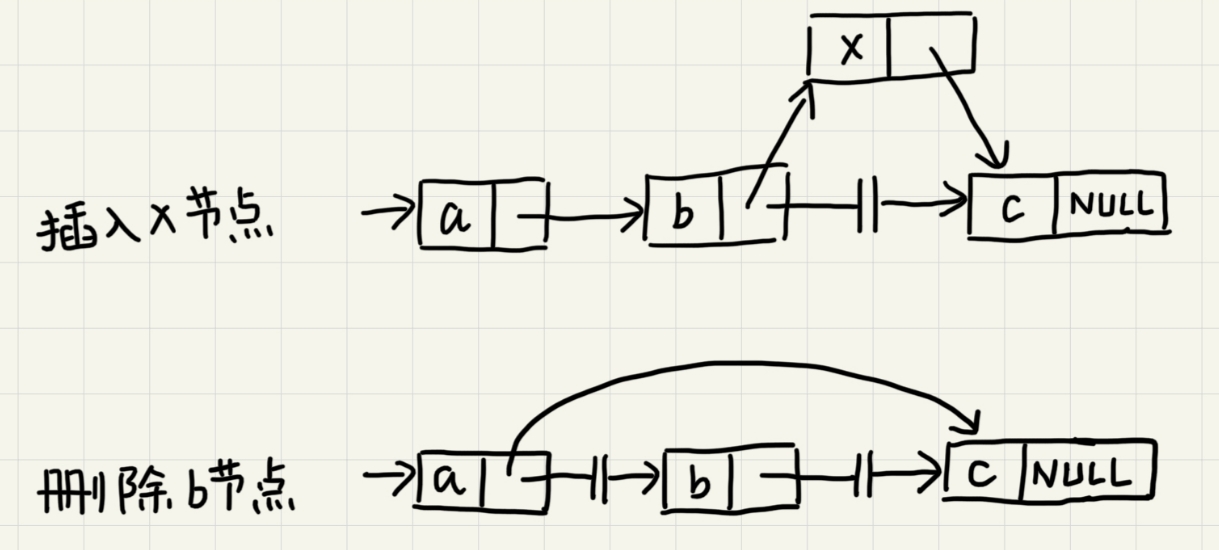 x
插入x节点 a b c NULL
删除b节点 a b c NULL